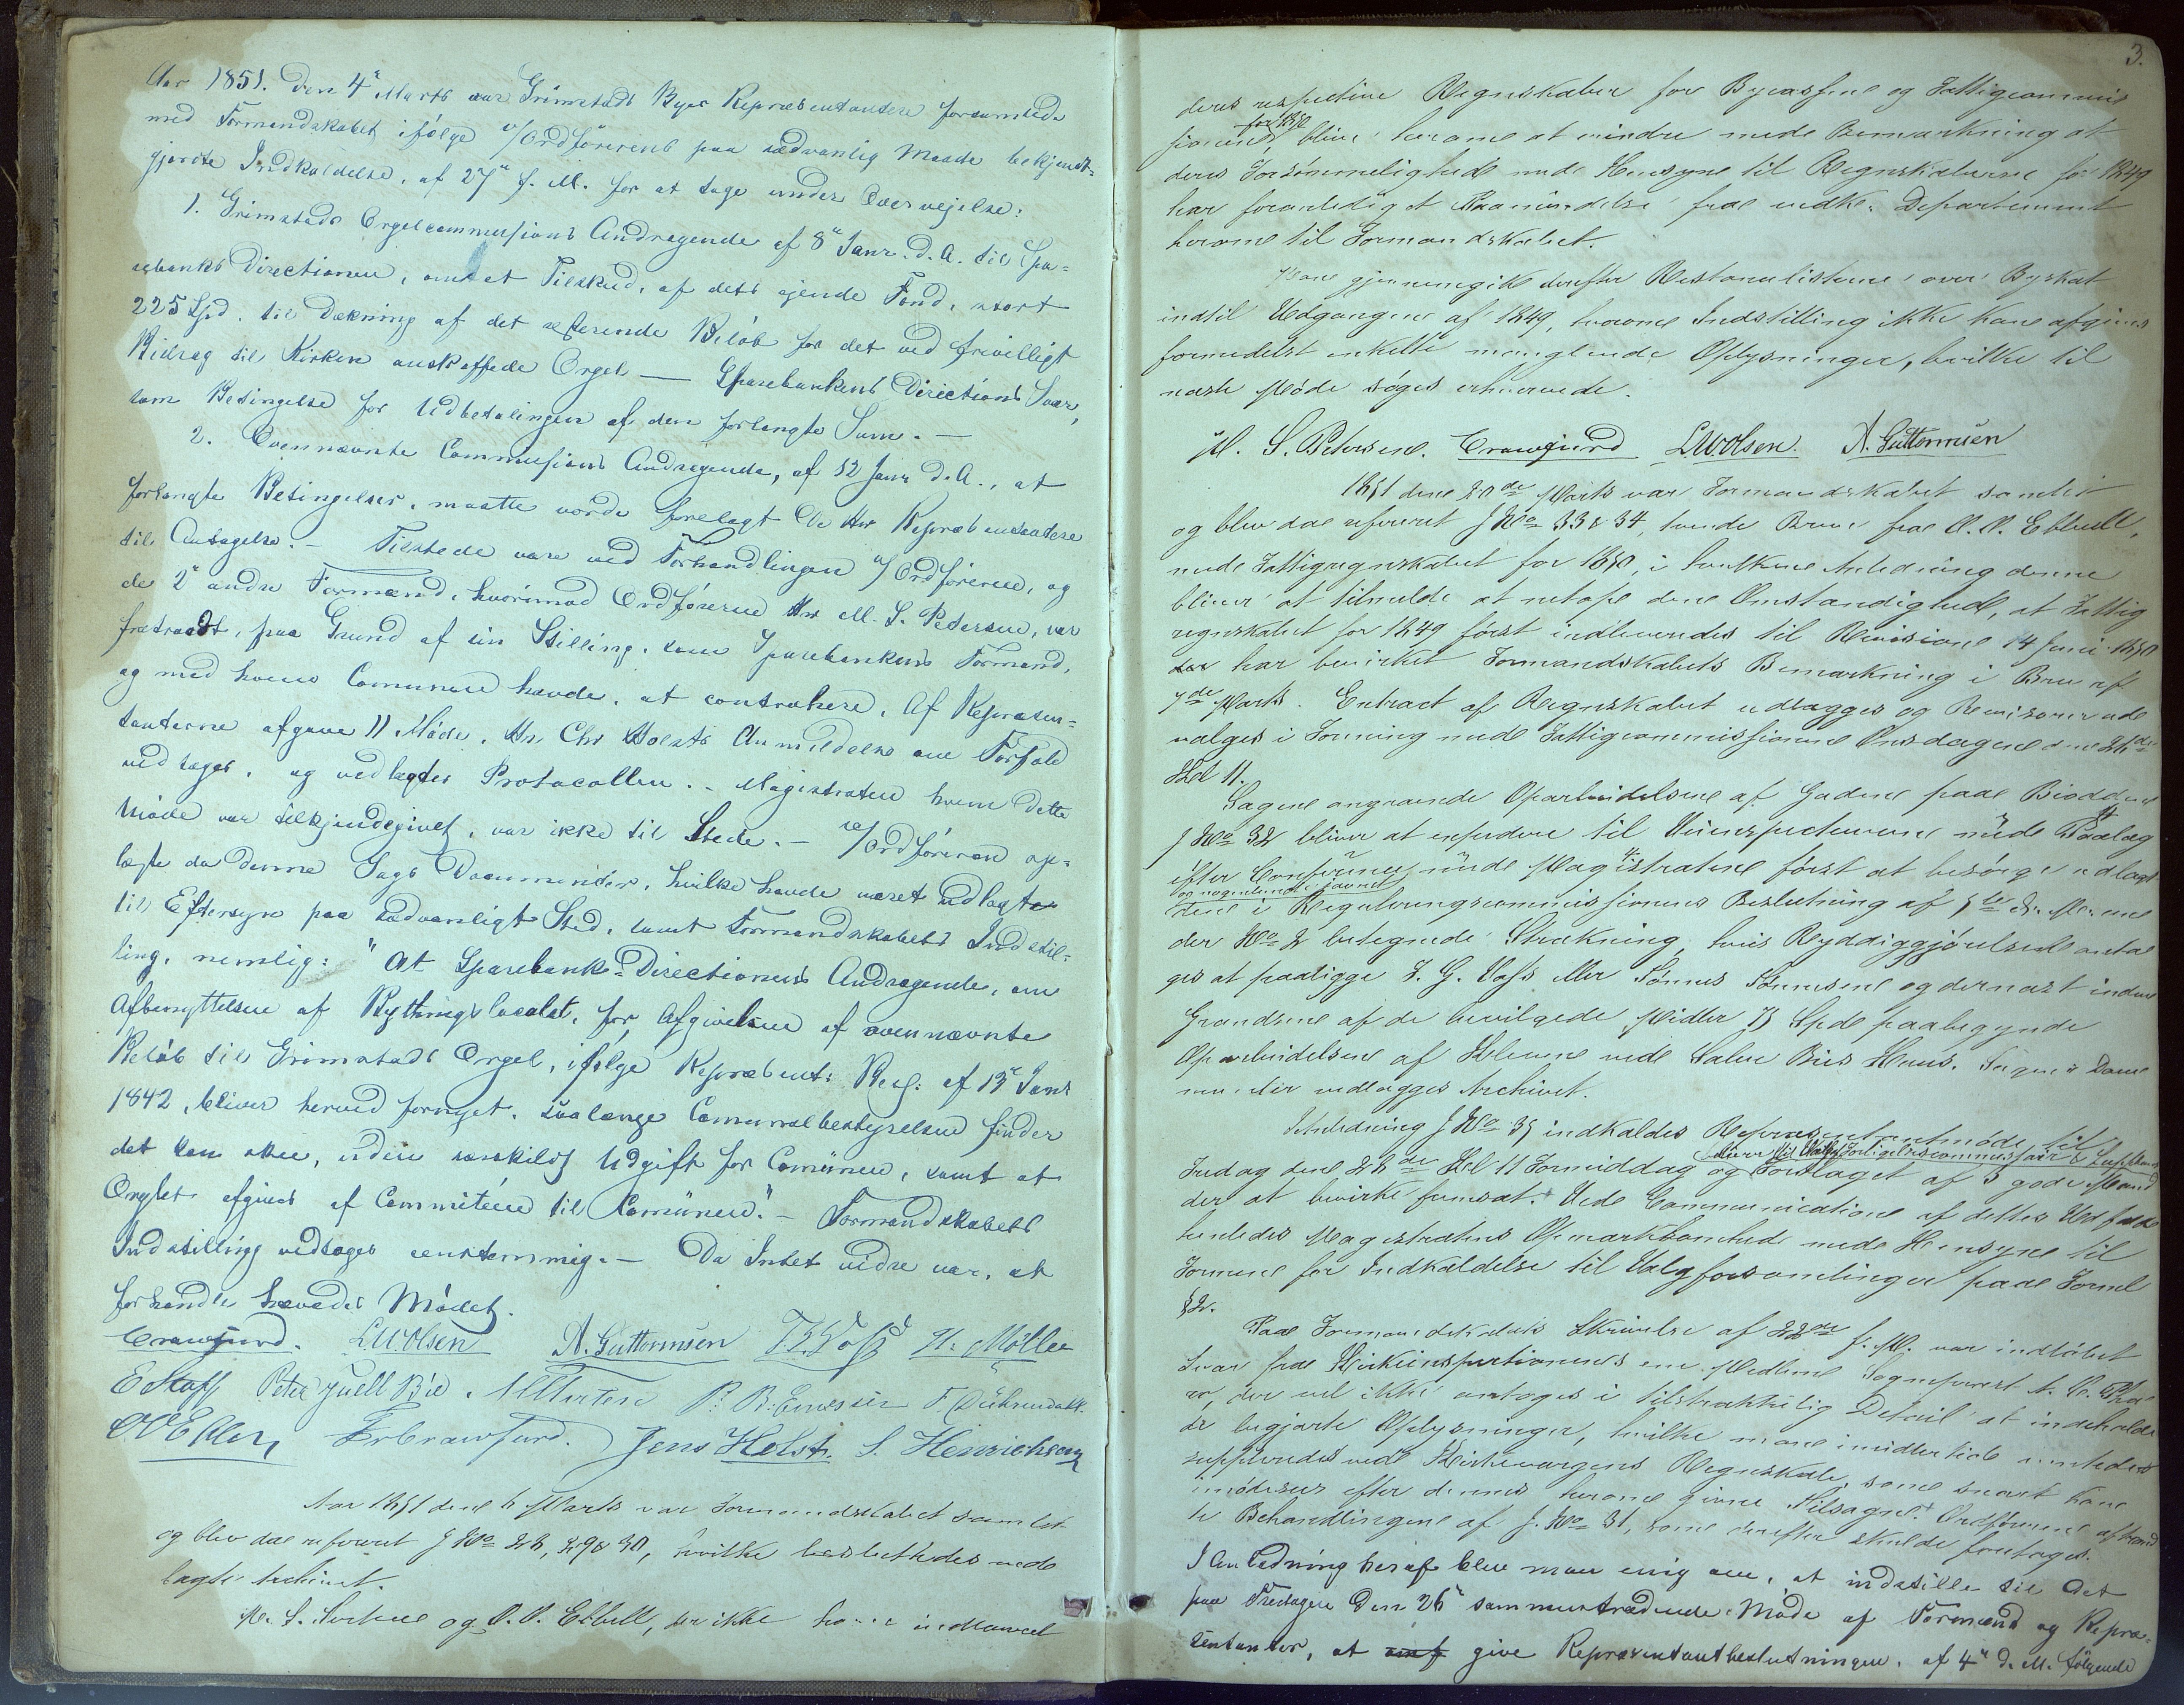 Aar 1851. Den 4e Marts var Grimstads Byes Repræsentantere forsamlede
med Formandskabet ifølge v/Ordførerens paa sædvanlig Maade bekjendt-
gjordte Indkaldelse, af 27e f. M. for at tage under Overvejelse:
1. Grimstads Orgelcommissions Andragende af 8e Janr. d. A. til Spa-
rebanks Directionen, om et Tilskud, af dets ejende Fond, stort
225 Spd. til Dækning af det resterende Beløb for det ved frivilligt
Bidrag til Kirken anskaffede Orgel — Sparebankens Directions Svar,
som Betingelse for Udbetalingen af den forlangte Sum. —
2. Ovennævnte Commissions Andragende, af 12 Janr d. A., at
forlangte Betingelser, maatte vorde forelagt De Hrr Repræsentantere
til Antagelse. — Tilstede vare ved Forhandlingen v/Ordføreren, og
de 2e andre Formænd, hvorimod Ordføreren Hr M. S. Petersen, var
fratraadt, paa Grund af sin Stilling, som Sparebankens Formand,
og med hvem Comunen havde, at contrahere. Af Repræsen-
tanterne afgave 11 Møde. Hr. Chr Holsts Anmeldelse om Forfald
vedtoges, og vedlagdes Protocollen. - Magistraten hvem dette
Møde var tilkjendegivet, var ikke til Stede. — v/Ordføreren op-
læste da denne Sags Documenter, hvilke havde været udlagte
til Eftersyn paa sædvanligt Sted, samt Formandskabets Indstil-
ling, nemlig: "At Sparebank-Directionens Andragende, om
Afbenyttelsen af Bythingslocalet, for Afgivelsen af ovennævnte
Beløb til Grimstads Orgel, ifølge Repræsent: Besl: af 13e Janr
1842, bliver herved fornyet, saalænge Comunalbestyrelsen finder
det kan skee, uden særskildt Udgift for Comünen, samt at
Orglet afgives af Committeen til Comünen." — Formandskabets
Indstilling vedtoges eenstemmig. — Da Intet vidre var, at
forhandle hævedes Mødet.
Crawfurd. L.W.Olsen A. Guttormsen Møller
Peter Juell Bie.
Fr Crawfurd. Jens Holst. S. Henrichsen
Aar 1851 den 6 Marts var Formandskabet samlet
og blev da refereret J No 28, 29 & 30, hvilke besluttedes ved-
lagte Archivet.
M. S. og O. P. Ebbell, der ikke have indleveret
3.
deres respective Regnskaber for Bycassen og Fattigcommis
sionen for 1850, blive herom at erindre med Bemærkning at
deres Forsømmelighed med Hensyn til Regnskaberne for 1849
har foranlediget Paamindelse fra vedk. Departement
herom til Formandskabet.
Man gjennemgik derefter Restancelisterne over Byskat
indtil Udgangen af 1849, hvorom Indstilling ikke kan afgives
formedelst enkelte manglende Oplysninger, hvilke til
næste Møde søges erhvervede.
M. S. Petersen. Crawfurd L.W.Olsen. A. Guttormsen
1851 den 20de Marts var Formandskabet samlet
og blev da refereret J No 33 & 34, tvende Breve fra O. P. Ebbell,
med Fattigregnskabet for 1850, i hvilken Anledning denne
bliver at tilmelde at netop den Omstændighed, at Fattig
regnskabet for 1849 først indleveredes til Revision 14 Juni 1850
har bevirket Formandskabets Bemærkning i Brev af
7de Marts. Extract af Regnskabet udlægges og Revisorerne
vælges i Forening med Fattigcommissionen Onsdagen den 26de
Kl 11.
Sagen angaaende Oparbeidelsen af Gaden paa Biodden
J No 32 bliver at Veiinspecteuren med Paalæg
efter Conference med Magistraten først at besørge udlagt
den i Reguleringscommissionens Beslutning af 5te d. M. un
der No 2 betegnede Strækning, hvis Ryddiggjørelse anta
ges at paaligge T. G. Voss eller Tønnes Tønnesen og dernæst inden
Grændsene af de bevilgede Midler 75 Spd paabegynde
Oparbeidelsen af Kleven ved Salve Bies Huus. Sagens Docu
menter vedlægges Archivet.
I Anledning J No 35 indkaldes Repræsentantmøde til
Fredag den 28de Kl 11 Formiddag og Forslaget af 3 gode Mænd
der at bevirke fremsat. Ved Communication af dettes Udfald
henledes Magistratens Opmærksomhed med Hensyn til
Formen for Indkaldelse til Valgforsamlinger paa Forml
§ 2.
Paa Formandskabets Skrivelse af 22de f. M. var indløbet
Svar fra Kirkeinspectionens ene Medlem Sognepræst
der vel ikke antoges i tilstrækkelig Detail at indeholde
de begjærte Oplysninger, hvilke man imidlertid ventede
suppleredes ved Kirkevergens Regnskab, som snart kan
imødesees efter dennes herom givne Tilsagn. Ordføreren
Behandlingen af J. No 31, som derefter skulde foretages.
I Anledning heraf blev man enig om, at indstille til det
paa Fredagen den 28e sammentrædende Møde af Formænd og Repræ-
sentanter, at give Repræsentantbeslutningen af 4e d. M. følgende